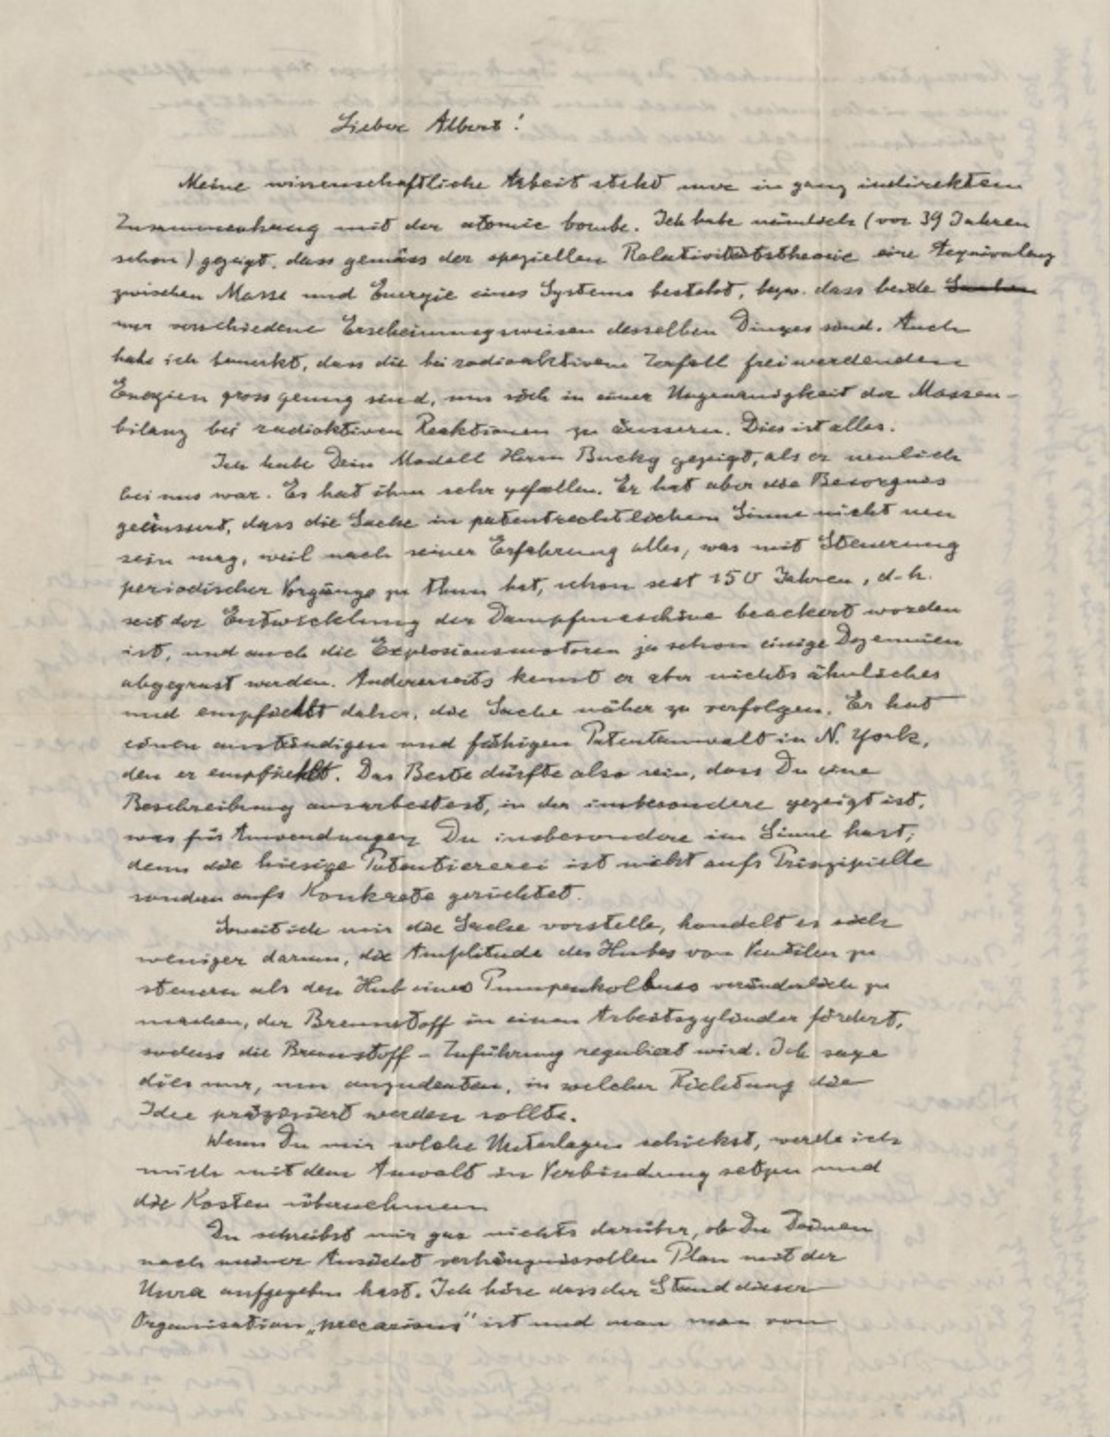 Lieber Albert!
Meine wissenschaftliche Arbeit steht nur in ganz indirektem
Zusammenhang mit der atomic bombe. Ich habe nämlich (vor 39 Jahren
schon) gezeigt, dass gemäss der speziellen Relativitätstheorie eine Aequivalenz
zwischen Masse und Energie eines Systems besteht, bezw. dass beide
nur verschiedene Erscheinungsweisen desselben Dinges sind. Auch
habe ich bemerkt, dass die bei radioaktivem Zerfall freiwerdenden
Energien gross genug sind, um sich in einer Ungenauigkeit der Massen-
bilanz bei radioktiven Reaktionen zu äussern. Dies ist alles.
Ich habe Dein Modell Herrn Bucky gezeigt, als er neulich
bei uns war. Es hat ihm sehr gefallen. Er hat aber die Besorgnis
geäussert, dass die Sache in patentrechtlichem Sinne nicht neu
sein mag, weil nach seiner Erfahrung alles, was mit Steuerung
periodischer Vorgänge zu thun hat, schon seit 150 Jahren, d.h.
seit der Entwicklung der Dampfmaschine beackert worden
ist, und auch die Explosionsmotoren ja schon einige Dezennien
abgegrast werden. Andererseits kennt er aber nichts ähnliches
und empfiehlt daher, die Sache näher zu verfolgen. Er hat
einen anständigen und fähigen Patentanwalt in N. York,
den er empfiehlt. Das Beste dürfte also sein, dass Du eine
Beschreibung ausarbeitest, in der insbesondere gezeigt ist,
was für Anwendungen Du insbesondere im Sinne hast;
denn die hiesige Patentiererei ist nicht aufs Prinzipielle
sondern aufs Konkrete gerichtet.
Soweit ich mir die Sache vorstelle, handelt es sich
weniger darum, die Amplitude des Hubes von Ventilen zu
steuern als den Hub eines Pumpenkolbens veränderlich zu
machen, der Brennstoff in einen Arbeitszylinder fördert,
sodass die Brennstoff-Zuführung reguliert wird. Ich sage
dies nur, um anzudeuten, in welcher Richtung die
Idee präzisiert werden sollte.
Wenn Du mir solche Unterlagen schickst, werde ich
mich mit dem Anwalt in Verbindung setzen und
die Kosten übernehmen
Du schreibst mir gar nichts darüber, ob Du Deinen
nach meiner Ansicht verhängnisvollen Plan mit der
Unra aufgegeben hast. Ich höre dass der Stand dieser
Organisation „precarious" ist und man von